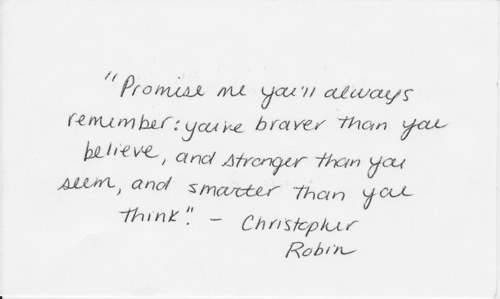 "Promise me you'll always
remember: you're braver than you
believe, and stronger than you
seem, and smarter than you
think." - Christopher
Robin